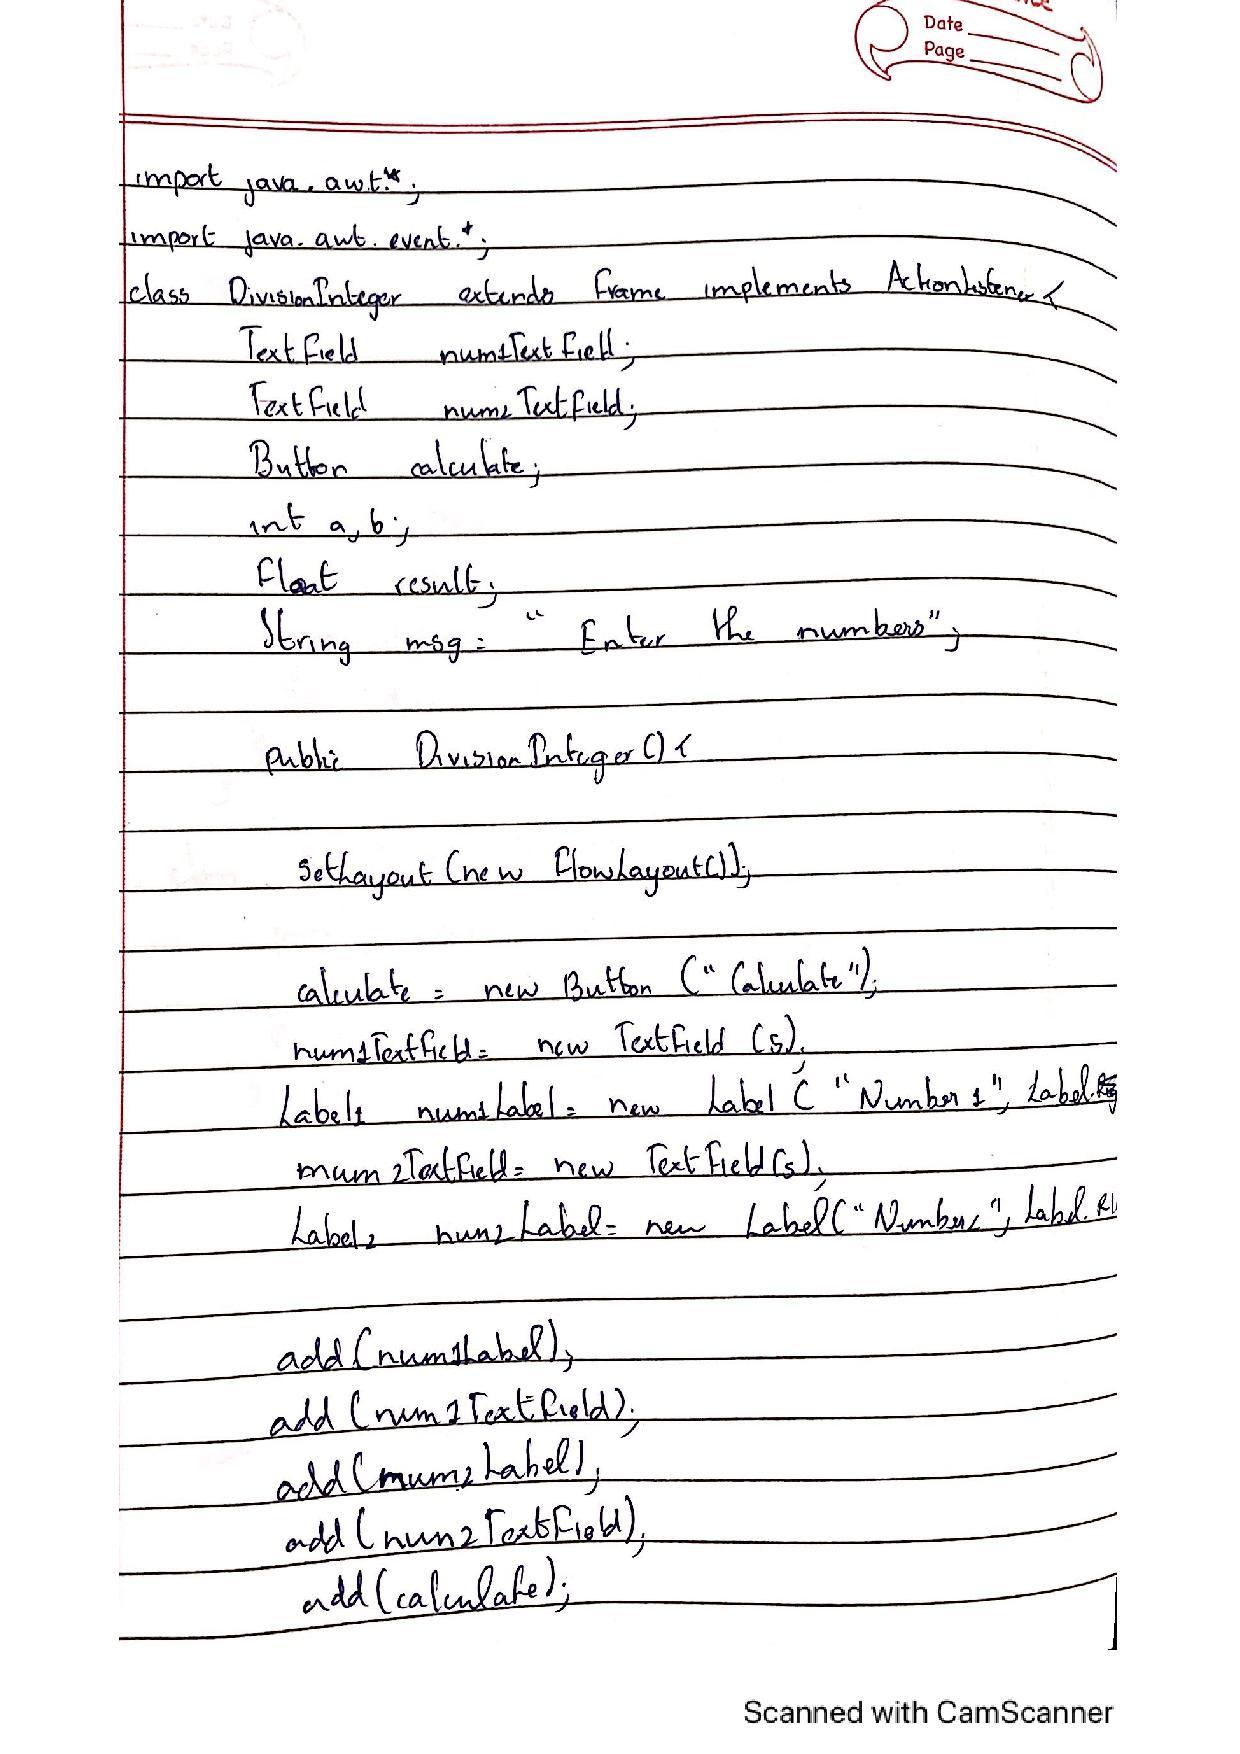 Date
Page
import java.awt.*;
import java.awt.event.*;
class DivisionInteger extends Frame implements ActionListener {
TextField num1TextField;
TextField num2TextField;
Button calculate;
int a, b;
Float result;
String msg = "Enter the numbers";
public DivisionInteger() {
setLayout (new FlowLayout());
calculate = new Button ("Calculate");
num1TextField = new TextField (5);
Label1 num1Label = new Label ("Number 1", Label.
num2TextField = new TextField(5);
Label2 num2Label = new Label("Number2", Label.RI
add(num1Label);
add (num1TextField);
add(num2Label);
add(num2TextField);
add(calculate);
Scanned with CamScanner